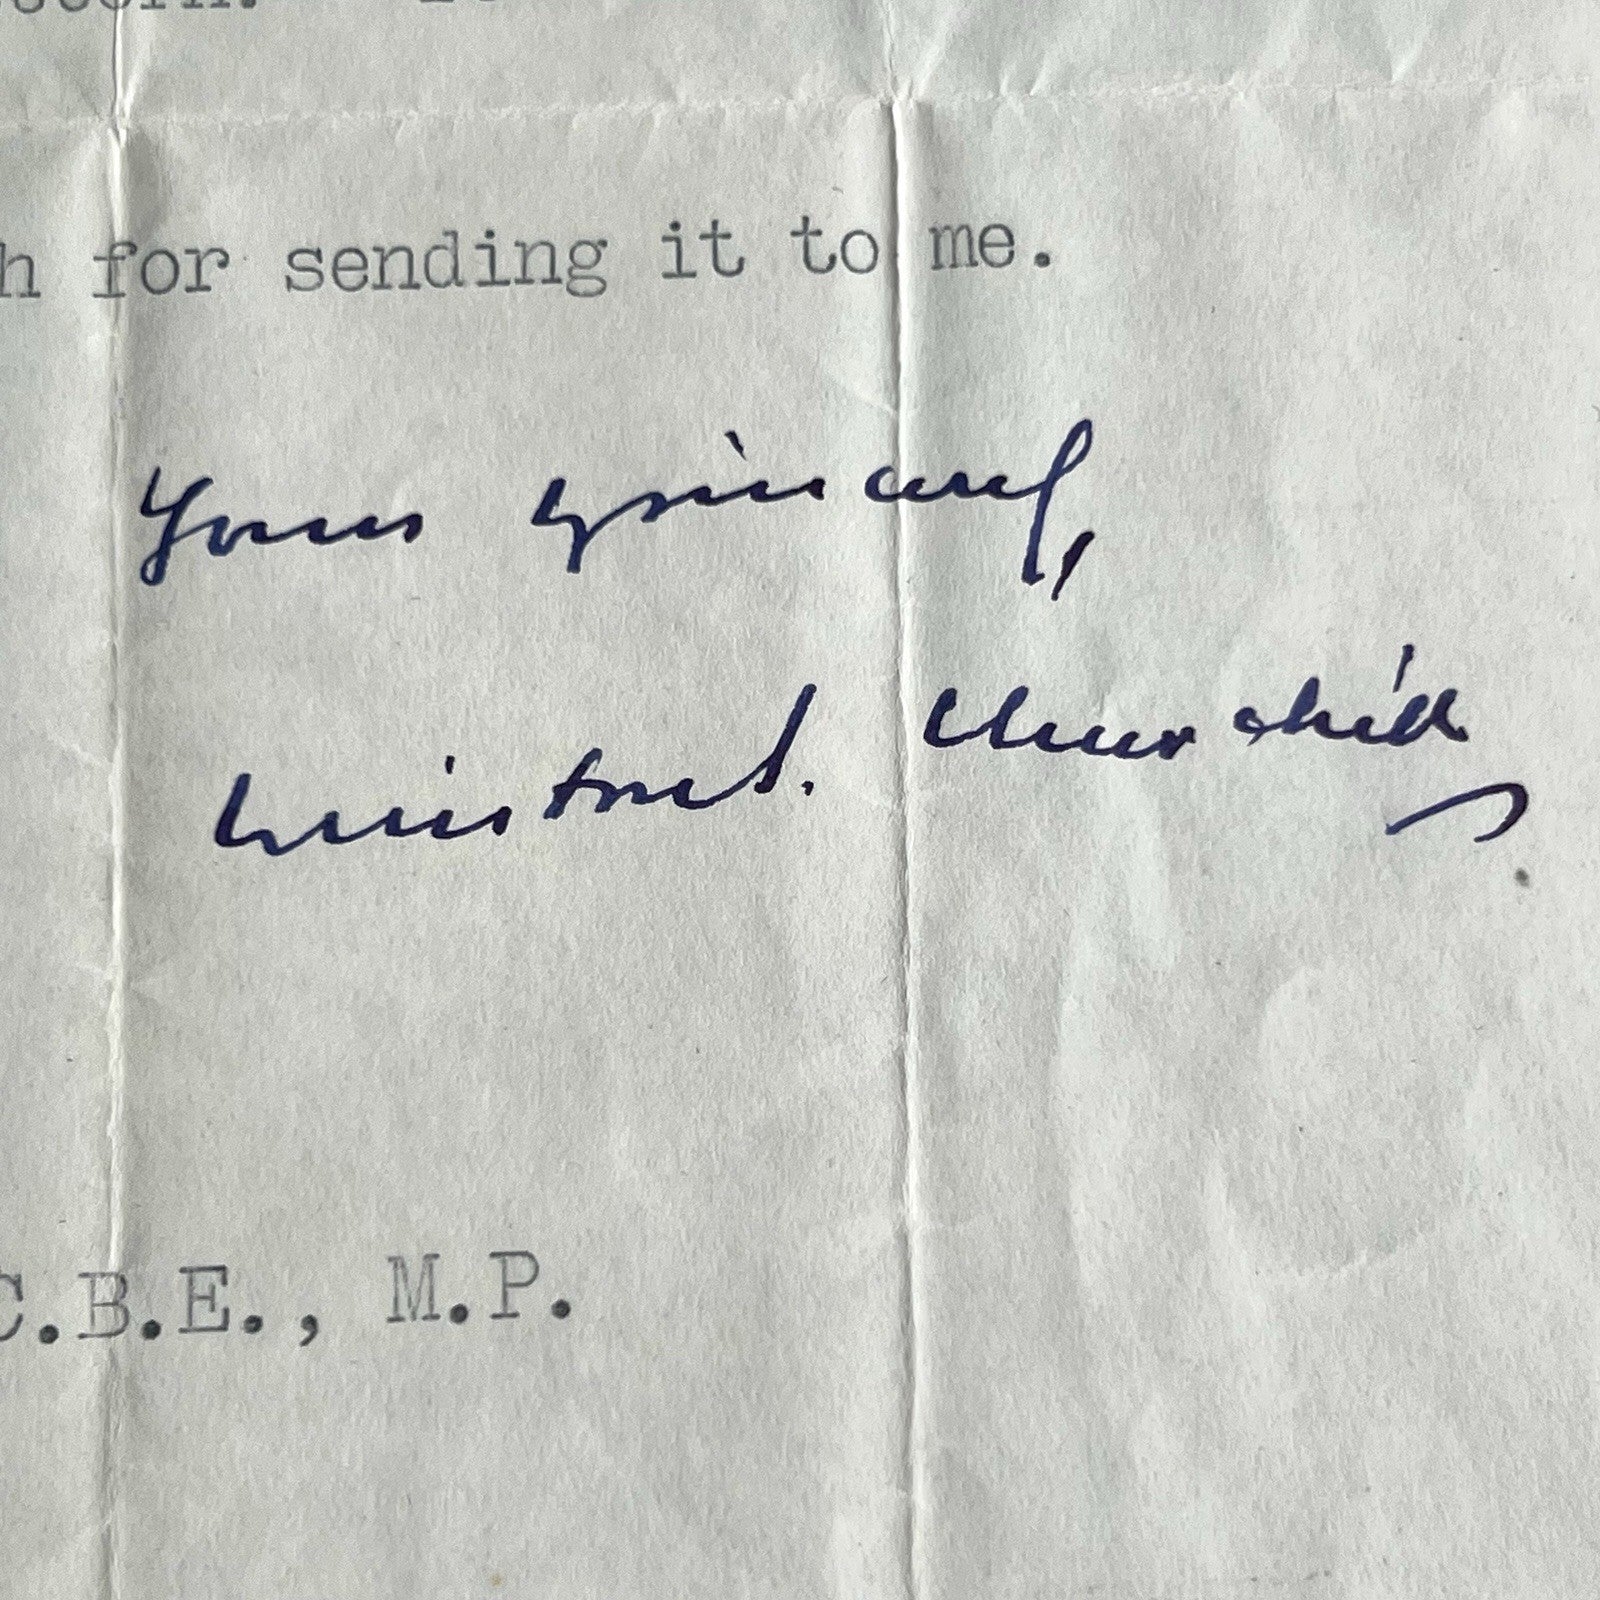 h for sending it to me.
Yours sincerely,
Winston S. Churchill
C.B.E., M.P.